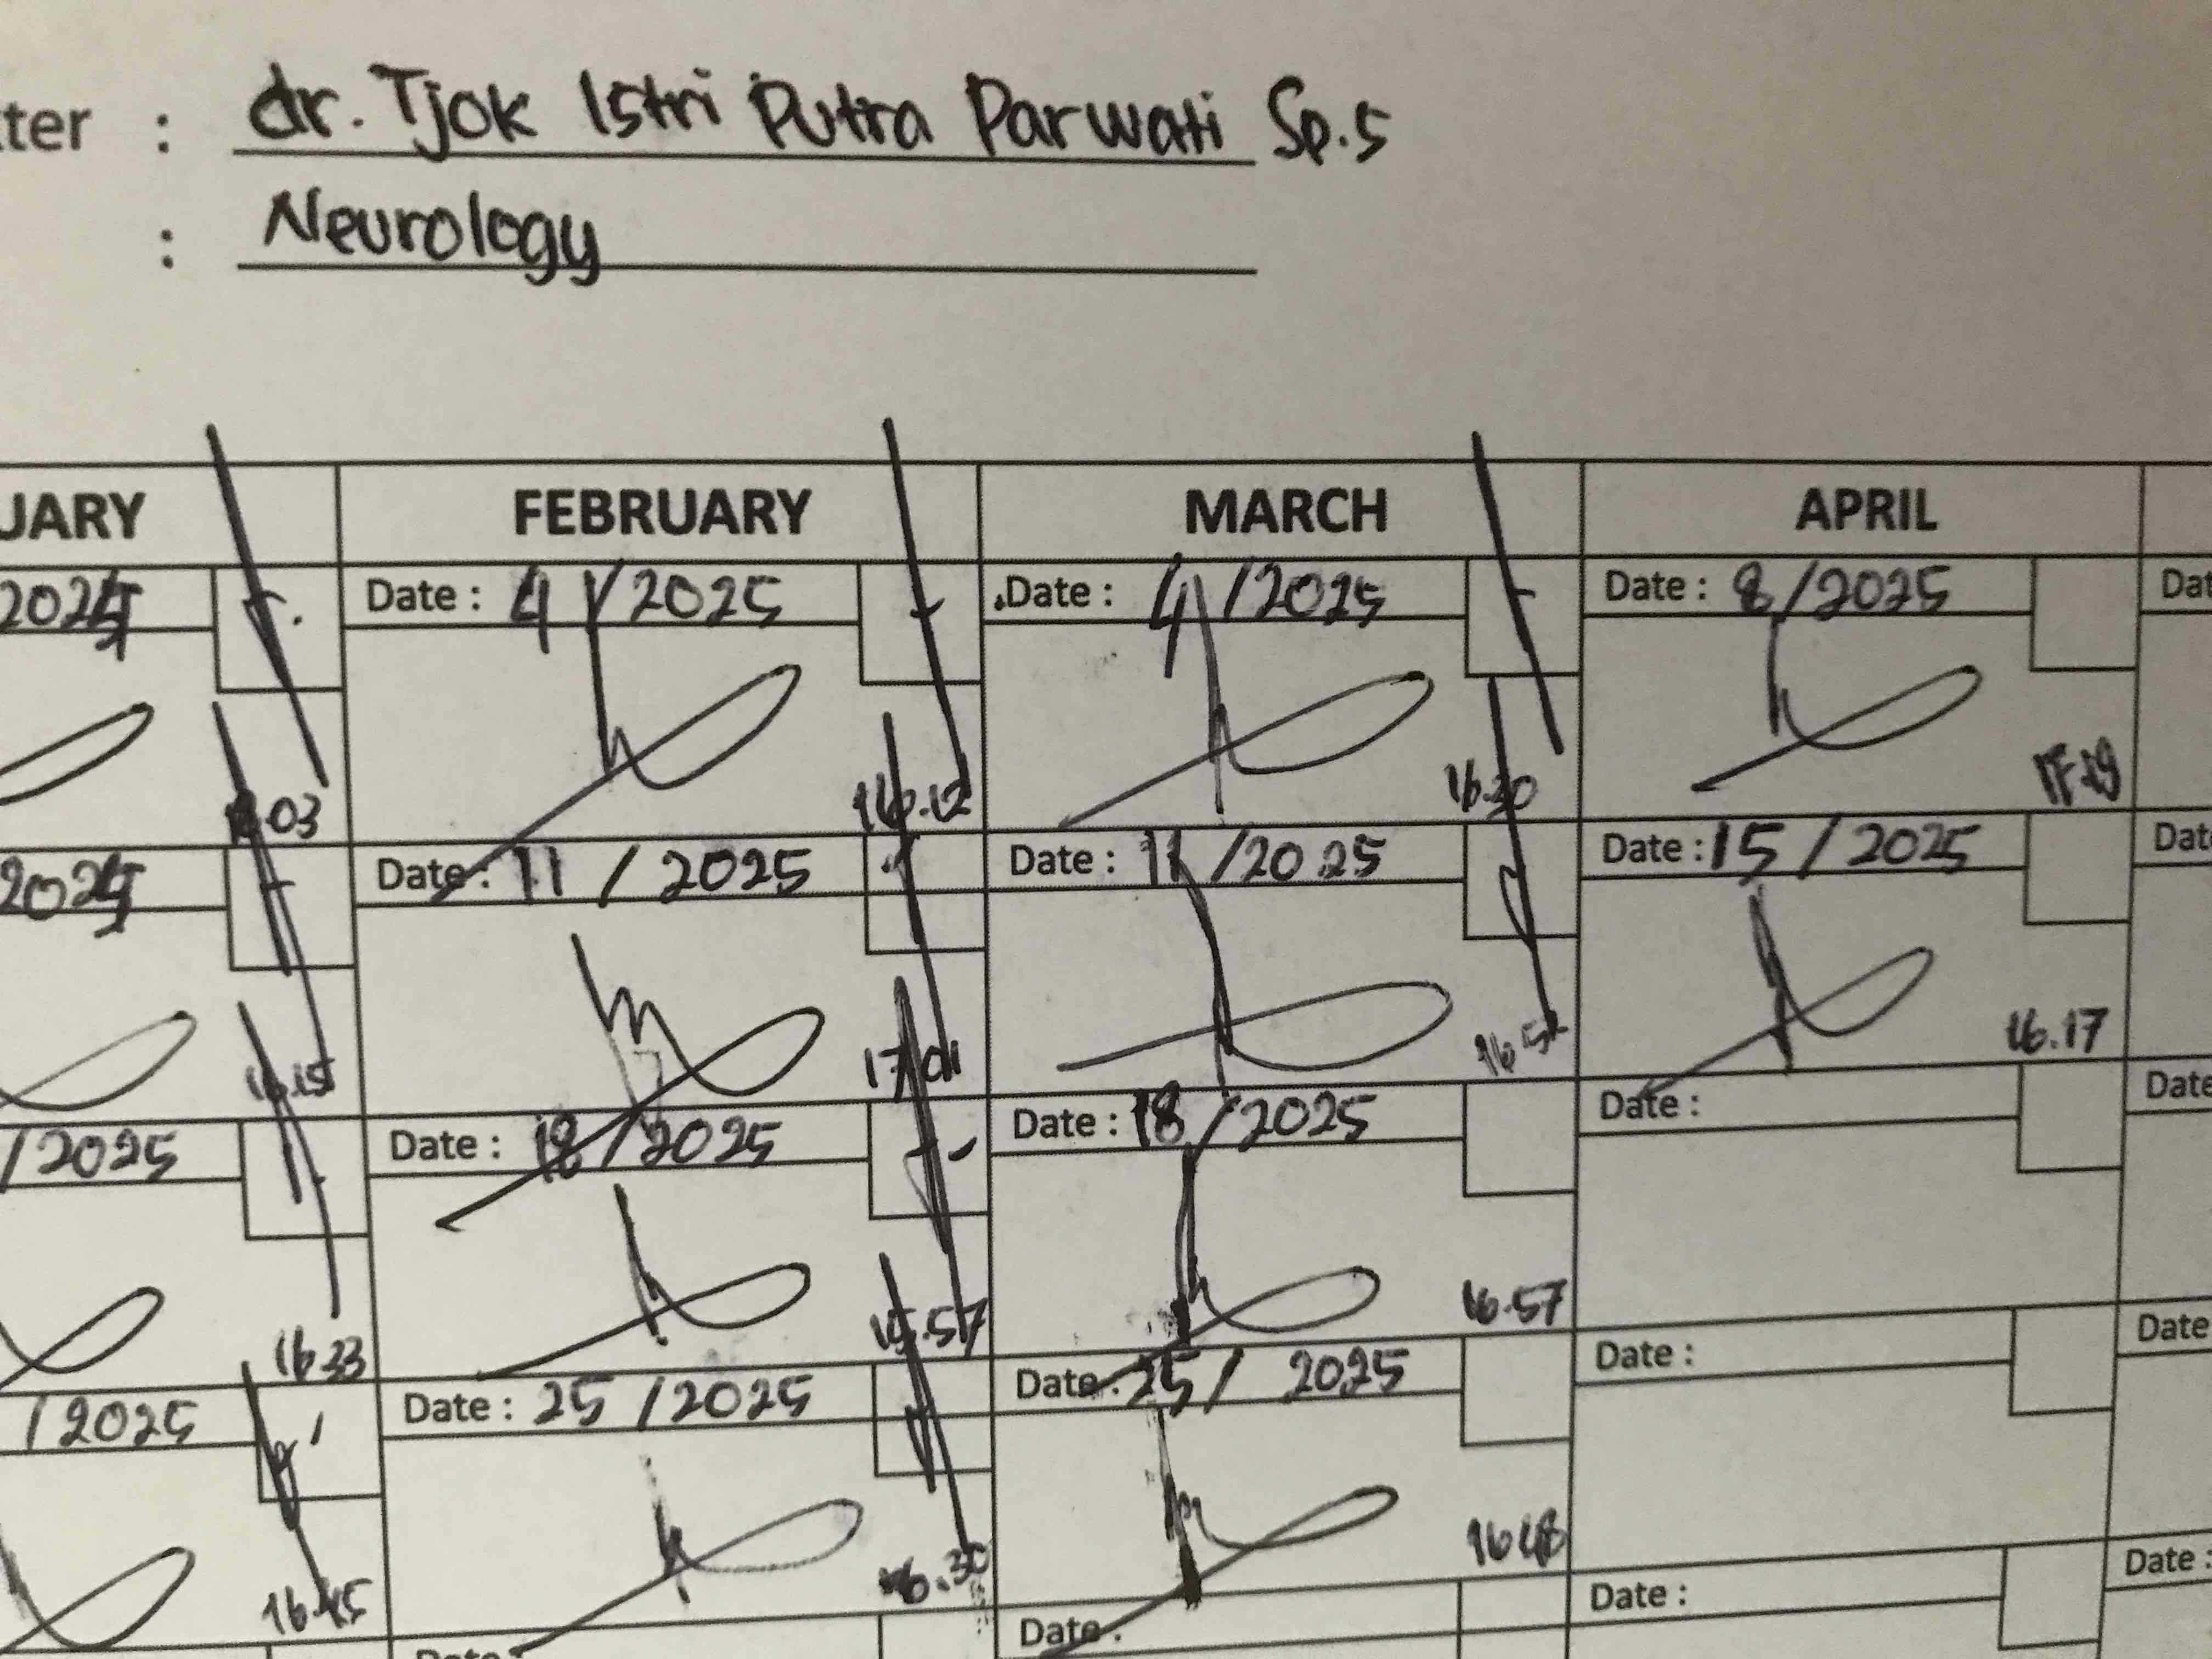 ter : dr. Tjok Istri Putra Parwati Sp.S
: Neurology
UARY FEBRUARY MARCH APRIL
Date : 4 / 2025 Date : 4 / 2025 Date : 8 / 2025 Dat
.03 16.12 16.30
Date : 11 / 2025 Date : 11 / 2025 Date : 15 / 2025 Date
16.15 17.01 16.17
/ 2025 Date : 18 / 2025 Date : 18 / 2025 Date : Date
16.33 15.57 16.57
/ 2025 Date : 25 / 2025 Date : 25 / 2025 Date : Date
16.45 16.30 16.48
Date : Date : Date :